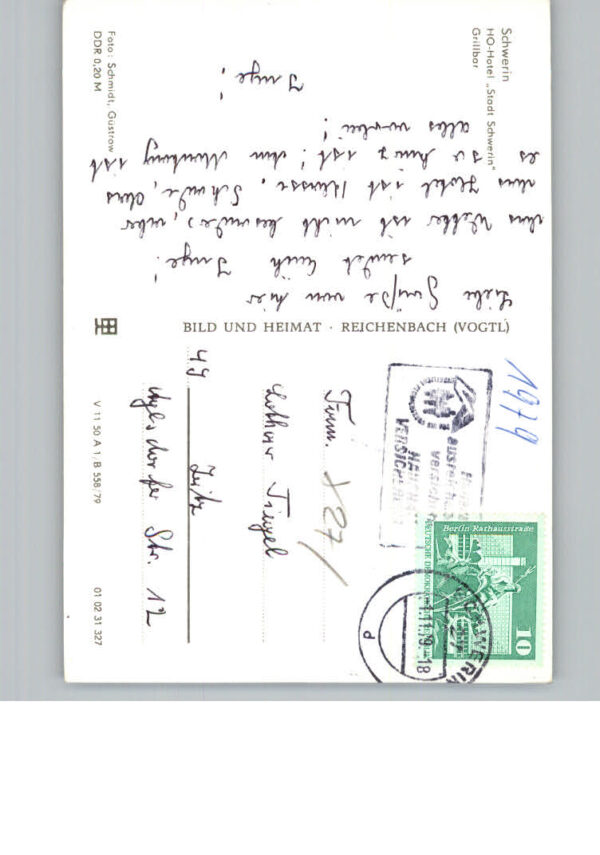 Schwerin
HO-Hotel „Stadt Schwerin"
Grillbar
Liebe Grüße von hier
sendet Euch Inge!
Das Wetter ist nicht besonders, aber
das Hotel ist Klasse. Schade, dass
es so kurz ist! Am Montag ist
alles vorbei!
Inge!
Foto: Schmidt, Güstrow
DDR 0,20 M
BILD UND HEIMAT · REICHENBACH (VOGTL)
V 11 50 A 1, B 558/79
01 02 31 327
1979
HAUSHALT
VERSICHERUNG
Berlin Rathausstraße
DEUTSCHE DEMOKRATISCHE
10
SCHWERIN
-1.11.79-18
d
Fam. X27/
Lothar
49 Zeitz
Str. 12